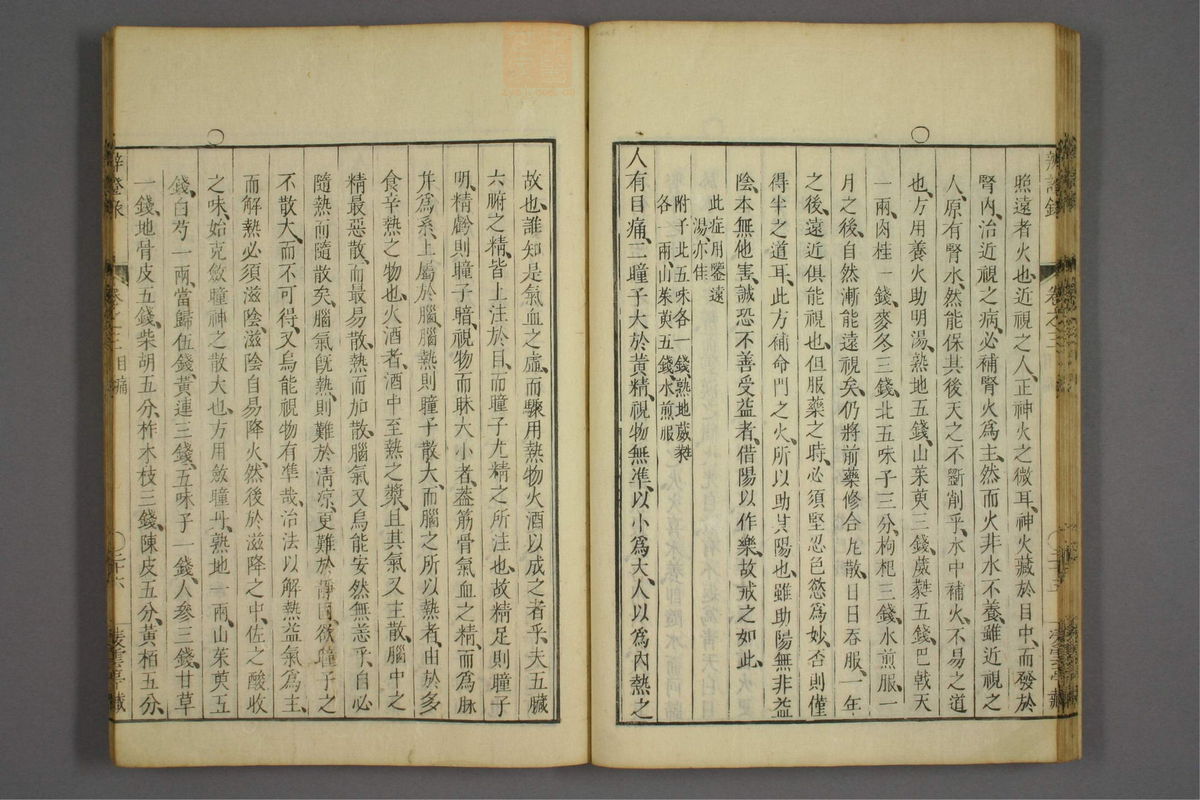 照遠者火也、近視之人、正神火之微耳、神火藏於目中、而發於
腎內、治近視之病、必補腎火爲主、然而火非水不養、雖近視之
人、原有腎水、然能保其後天之不斷削乎、水中補火、不易之道
也、方用養火助明湯、熟地五錢、山茱萸三錢、葳蕤五錢、巴戟天
一兩、肉桂一錢、麥冬三錢、北五味子三分、枸杞三錢、水煎服、一
月之後、自然漸能遠視矣、仍將前藥修合丸散、日日吞服、一年
之後、遠近俱能視也、但服藥之時、必須堅忍色慾爲妙、否則僅
得半之道耳、此方補命門之火、所以助其陽也、雖助陽無非益
陰、本無他害、誠恐不善受益者、借陽以作樂、故戒之如此、
此症用鑒遠
湯、亦佳
附子北五味各一錢、熟地葳蕤
各一兩、山茱萸五錢、水煎服
人有目痛、三瞳子大於黃精、視物無準、以小爲大、人以爲內熱之
卷之三
故也、誰知是氣血之虛、而驟用熱物火酒以成之者乎、夫五臟
六腑之精、皆上注於目、而瞳子尤精之所注也、故精足則瞳子
明、精虧則瞳子暗、視物而昧大小者、蓋筋骨氣血之精、而爲脉
并爲系、上屬於腦、腦熱則瞳子散大、而腦之所以熱者、由於多
食辛熱之物也、火酒者、酒中至熱之漿、且其氣又主散、腦中之
精最惡散、而最易散、熱而加散、腦氣又烏能安然無恙乎、自必
隨熱而隨散矣、腦氣旣熱、則難於淸凉、更難於靜固、欲瞳子之
不散大、而不可得、又烏能視物有準哉、治法以解熱益氣爲主、
而解熱必須滋陰、滋陰自易降火、然後於滋降之中、佐之酸收
之味、始克斂瞳神之散大也、方用斂瞳丹、熟地一兩、山茱萸五
錢、白芍一兩、當歸伍錢、黃連三錢、五味子一錢、人參三錢、甘草
一錢、地骨皮五錢、柴胡五分、柞木枝三錢、陳皮五分、黃栢五分、
卷之三 目痛
二十六